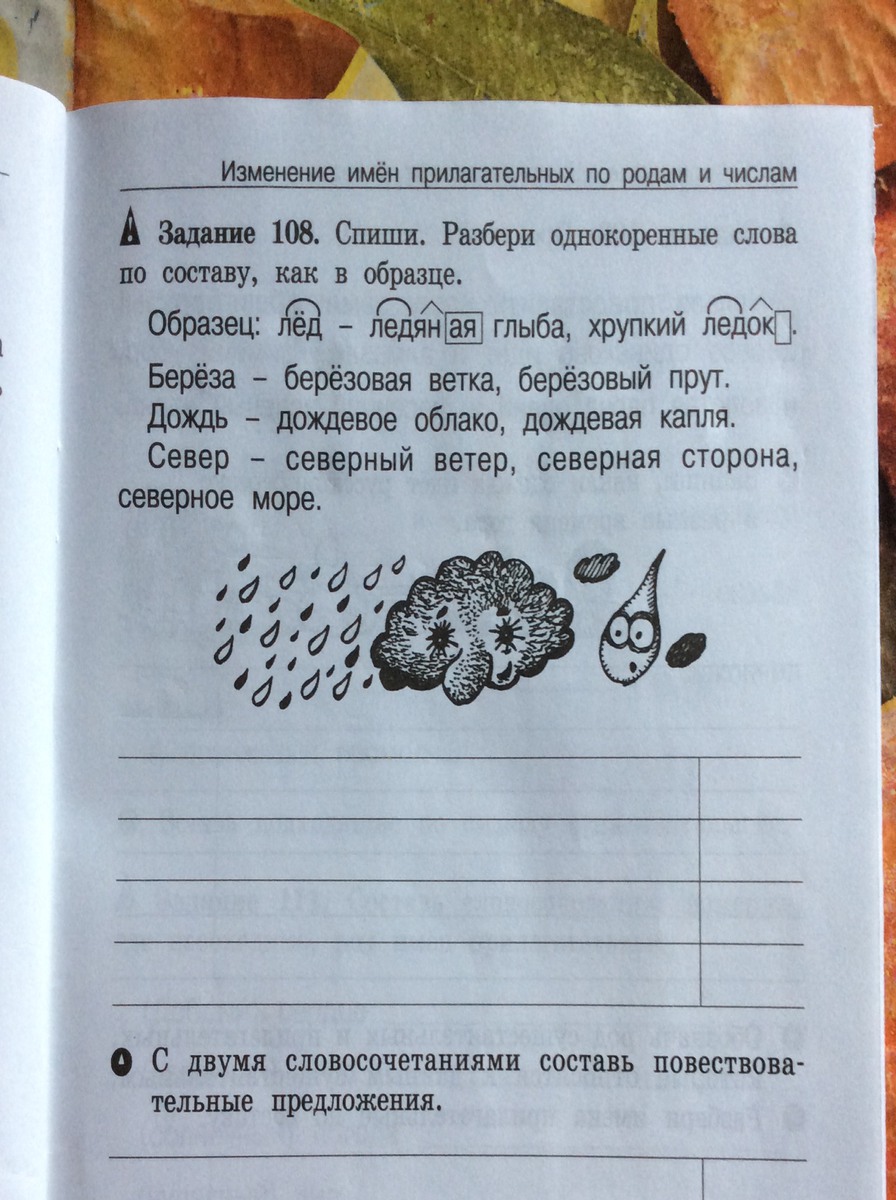 Изменение имён прилагательных по родам и числам
Задание 108. Спиши. Разбери однокоренные слова
по составу, как в образце.
Образец: лёд – ледяная глыба, хрупкий ледок.
Берёза – берёзовая ветка, берёзовый прут.
Дождь – дождевое облако, дождевая капля.
Север – северный ветер, северная сторона,
северное море.
С двумя словосочетаниями составь повествова-
тельные предложения.